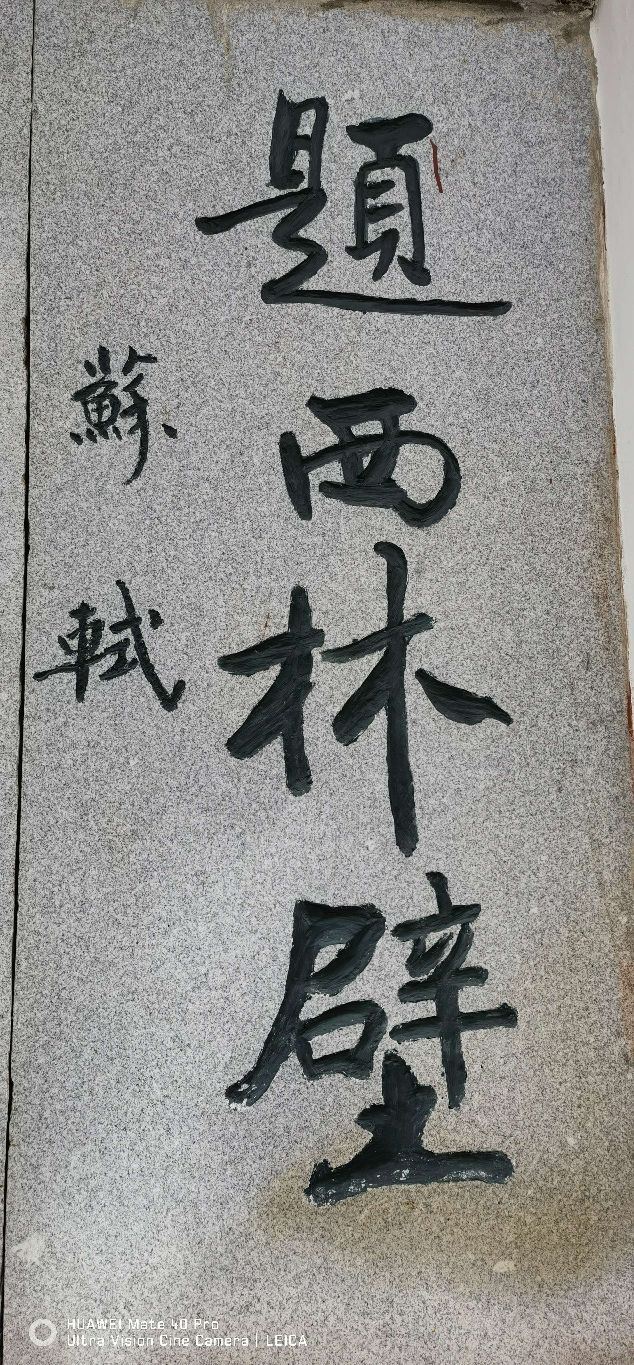 題西林壁
蘇軾
HUAWEI Mate 40 Pro
Ultra Vision Cine Camera | LEICA